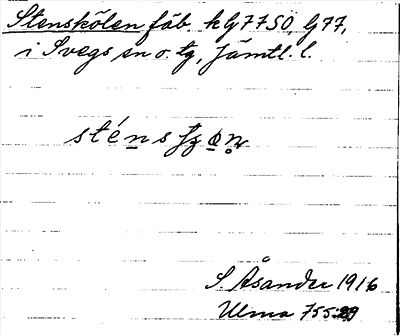 Stenskölen fäb. kG77SO, G77,
i Svegs sn o. tg, Jämtl. l.
S. Åsander 1916
Ulma 755:29